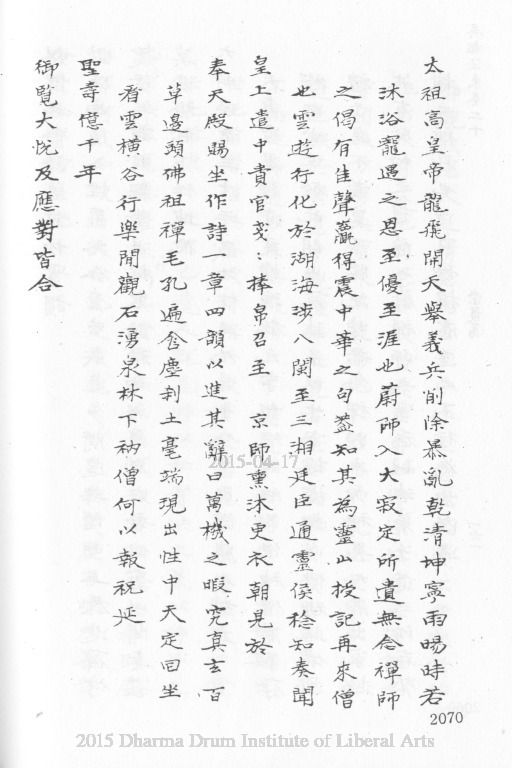 太祖高皇帝龍飛開天舉義兵削除暴亂乾清坤寧雨暘時若
沐浴寵遇之恩至優至渥也蔚師入大寂定所遺無念禪師
之偈有佳聲贏得震中華之句益知其為靈山授記再來僧
也雲遊行化於湖海涉八閩至三湘廷臣通靈侯稔知奏聞
皇上遣中貴官戔〻捧帛召至 京師熏沐更衣朝見於
奉天殿賜坐作詩一章四韻以進其辭曰萬機之暇究真玄百
草邊頭佛祖禪毛孔遍含塵刹土毫端現出性中天定回坐
看雲橫谷行樂閒觀石湧泉林下衲僧何以報祝延
聖壽億千年
御覽大悅及應對皆合
2070
2015-04-17
2015 Dharma Drum Institute of Liberal Arts